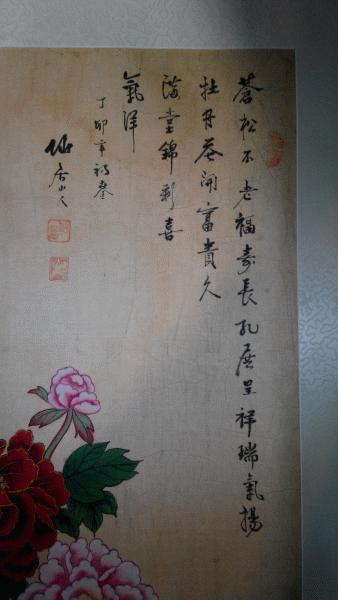 蒼松不老福壽長孔展呈祥瑞氣揚
牡丹花開富貴久
滿堂錦彩喜
氣洋
丁卯年
仙居山人